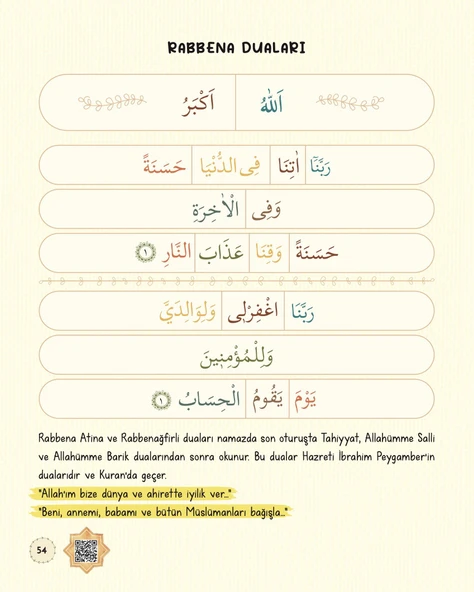 RABBENA DUALARI
اَللّٰهُ اَكْبَرُ
رَبَّنَٓا اٰتِنَا فِى الدُّنْيَا حَسَنَةً
وَفِى الْاٰخِرَةِ
حَسَنَةً وَقِنَا عَذَابَ النَّارِ ١
رَبَّنَا اغْفِرْلِى وَلِوَالِدَيَّ
وَلِلْمُؤْمِنِينَ
يَوْمَ يَقُومُ الْحِسَابُ ١
Rabbena Atina ve Rabbenağfirli duaları namazda son oturuşta Tahiyyat, Allahümme Salli
ve Allahümme Barik dualarından sonra okunur. Bu dualar Hazreti İbrahim Peygamber'in
dualarıdır ve Kuran'da geçer.
"Allah'ım bize dünya ve ahirette iyilik ver..."
"Beni, annemi, babamı ve bütün Müslümanları bağışla..."
54